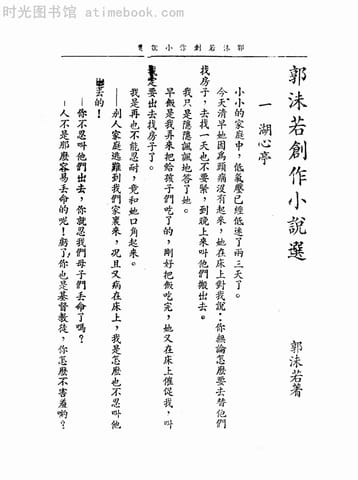 时光图书馆 atimebook.com
郭沫若創作小說選
郭沫若創作小說選
郭沫若著
一 湖心亭
小小的家庭中，低氣壓已經低迷了兩三天了。
今天清早她因爲頭痛沒有起來，她在床上對我說：你無論怎麼要去替他們
找房子，去找一天也不要緊，到晚上來叫他們搬出去。
我只是隱隱諷諷地答了她。
早飯是我弄來把給孩子們吃了的，剛好把飯吃完，她又在床上催促我，叫
我定要出去找房子了。
我是再也不能忍耐，竟和她口角起來。
——别人家庭逃難到我們家裏來，况且又病在床上，我是怎麼也不忍叫他
出去的！
——你不忍叫他們出去，你就忍我們母子們去丟命了嗎？
——人不是那麼容易丟命的呢！虧了你也是基督教徒，你怎麼不害羞喲？